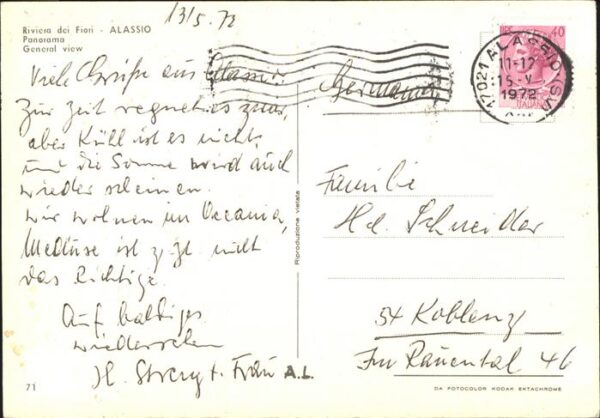 Riviera dei Fiori - ALASSIO
Panorama
General view
13/5. 72
Viele Grüße aus Alassio.
Zur Zeit regnet es zwar,
aber Kühl ist es nicht,
und die Sonne wird auch
wieder scheinen.
wir wohnen im Oceania,
Meduse ist z.zt nicht
das Richtige.
Auf baldiges
wiedersehen
H. + Frau A.L.
71
Riproduzione vietata
Germania
40
ITALIANE
17021 ALASSIO (SV)
11-12
15-V
1972
Familie
Hd. Schneider
54 Koblenz
Im Rauental 46
DA FOTOCOLOR KODAK EKTACHROME